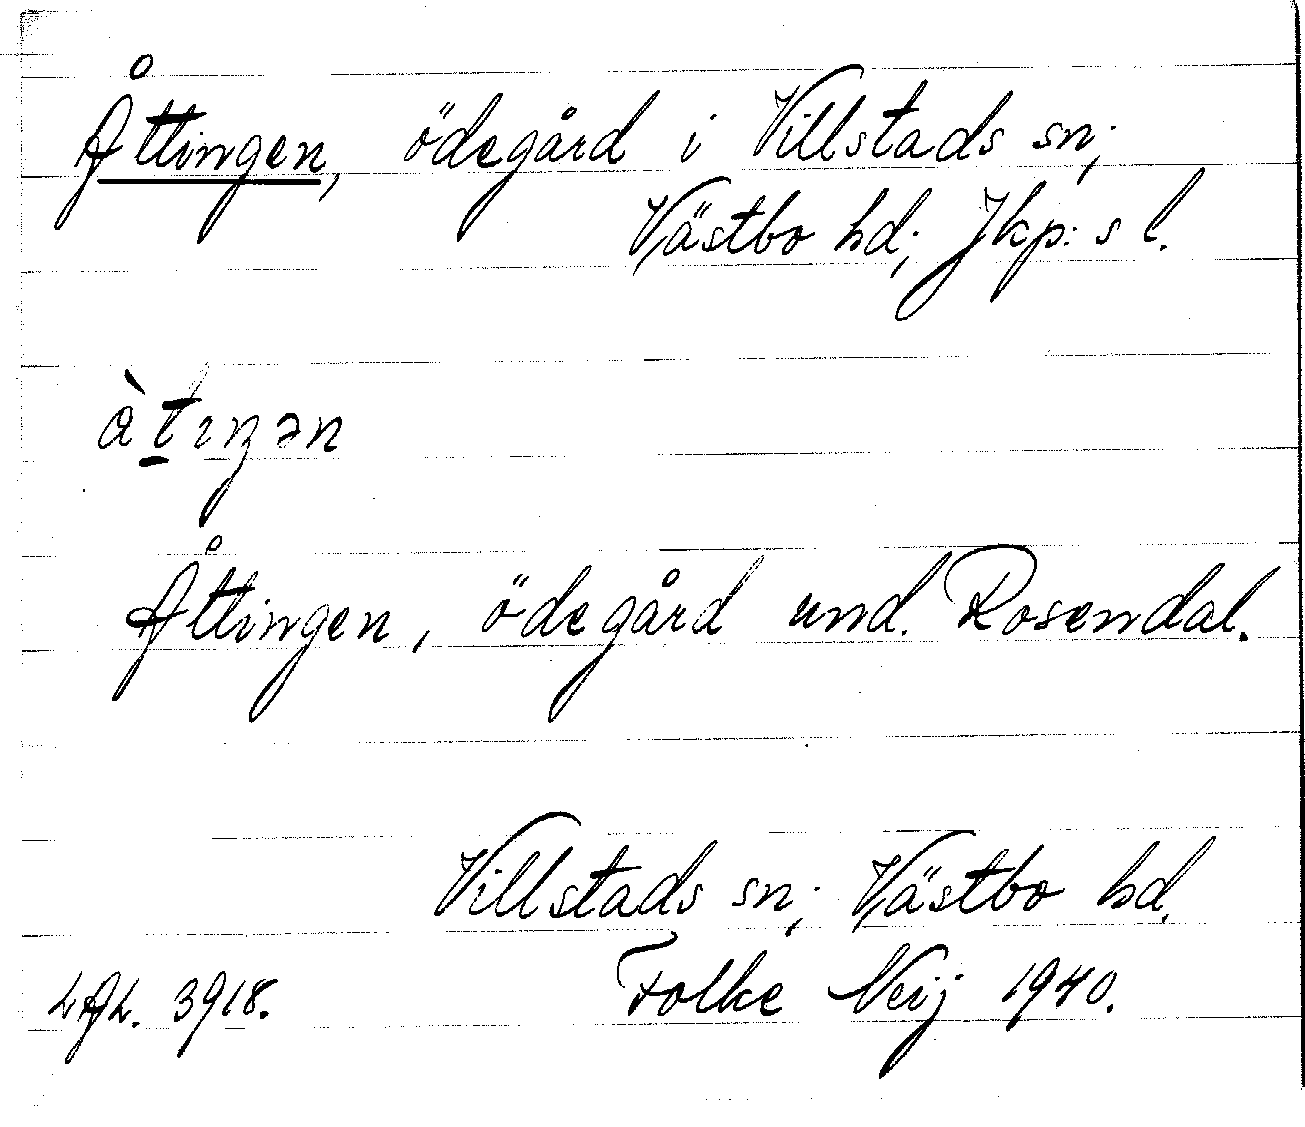 Åttingen, ödegård i Villstads sn;
Västbo hd; Jkp:s l.
Åttingen, ödegård und. Rosendal.
Villstads sn; Västbo hd.
LAL. 3918. Folke Neij 1940.